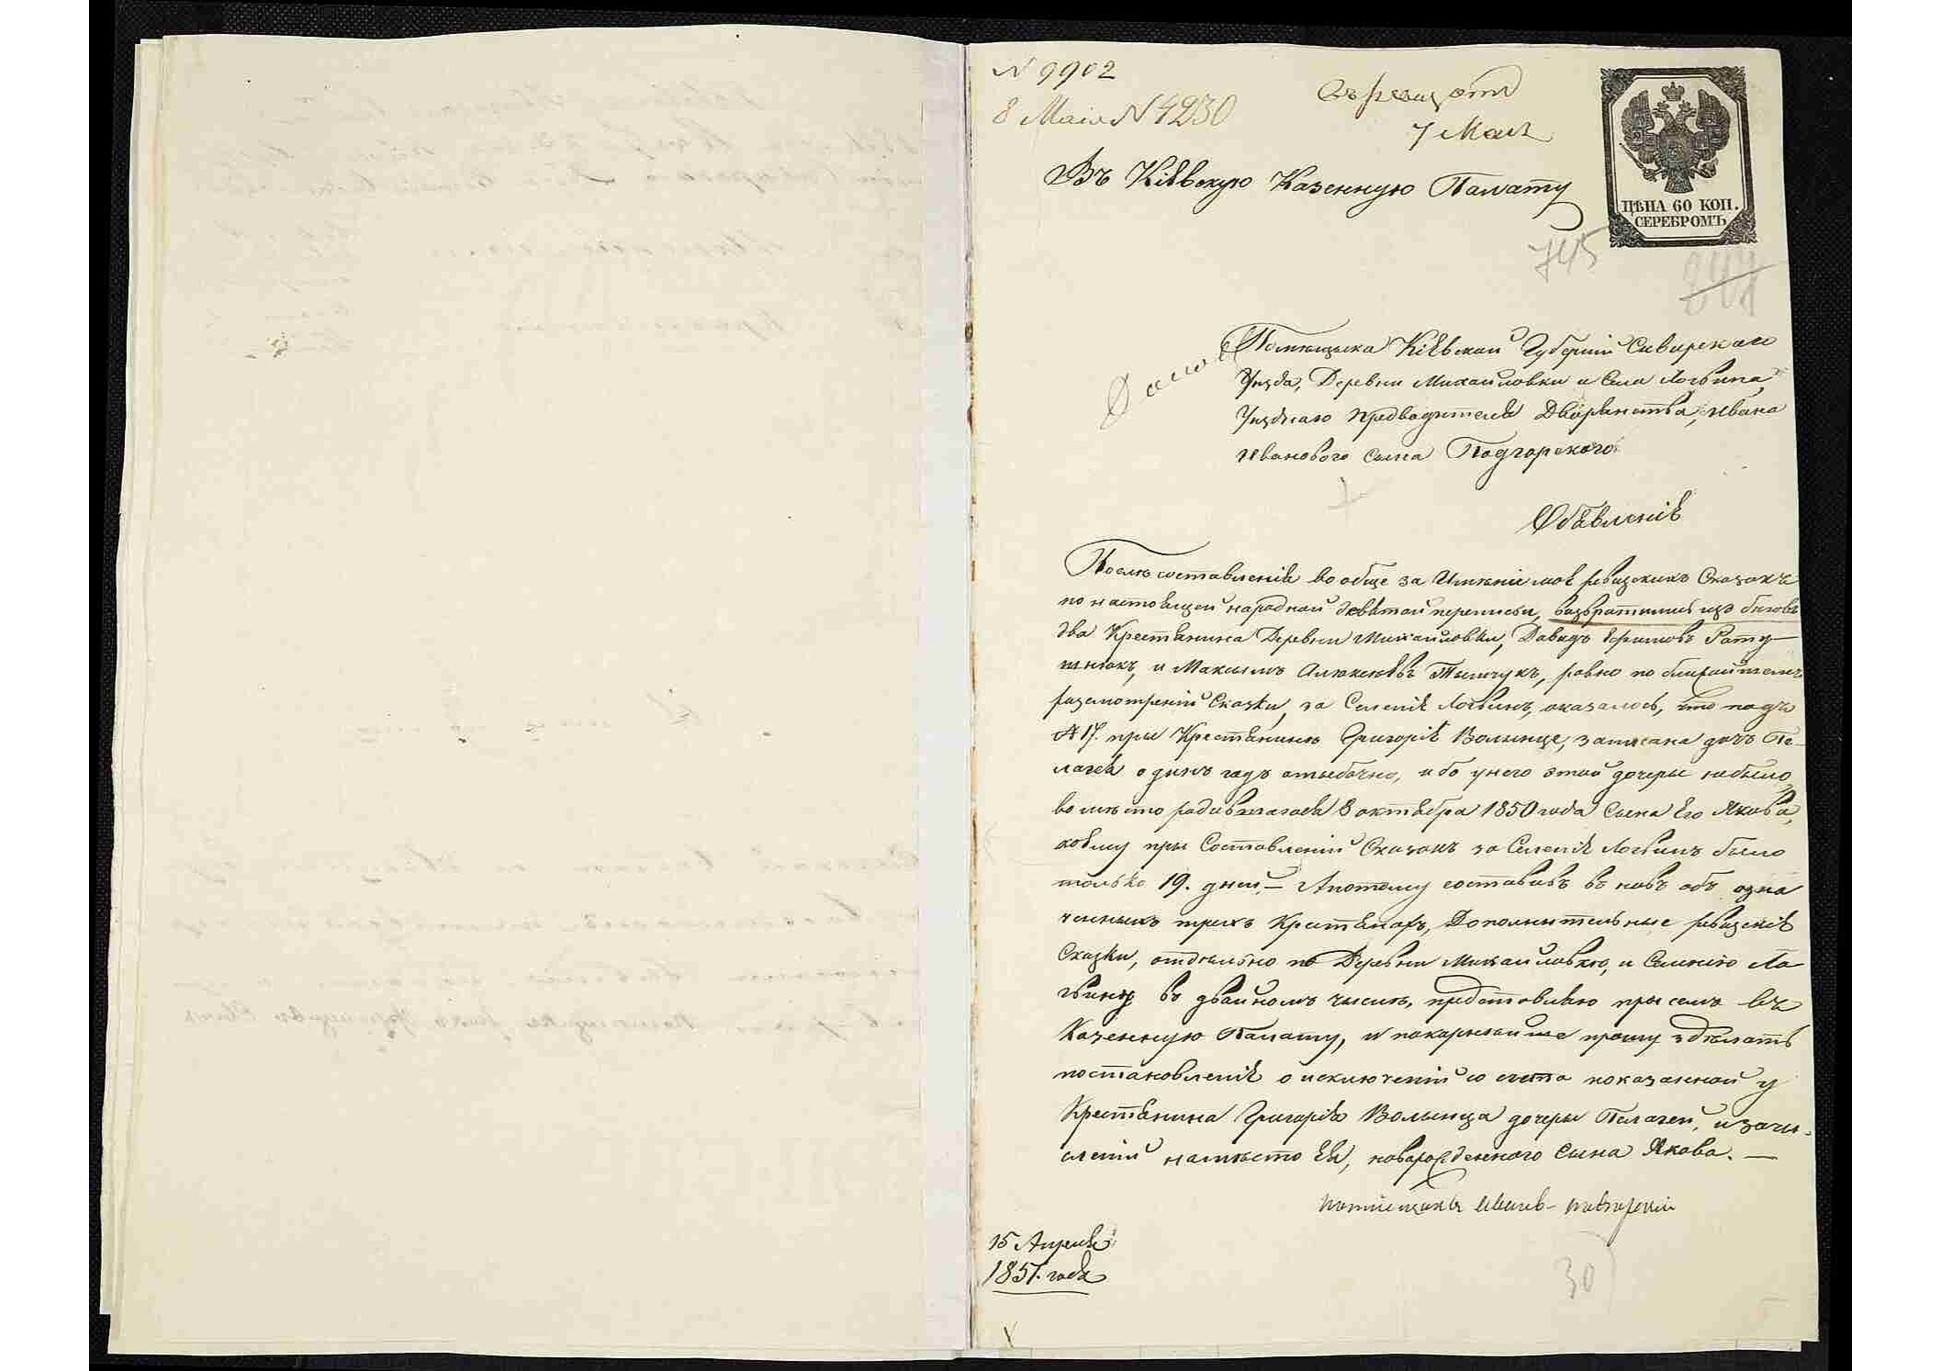 N 9902
8 Маія N 4230
7 Мая
Въ Кіевскую Казенную Палату
ЦѢНА 60 КОП.
СЕРЕБРОМЪ
745
Помѣщыка Кіевской Губерніи Сквирскаго
Уѣзда, Деревни Михайловки и Села Логвина,
Уѣзднаго Предводителя Дворянства, Ивана
Иванового сына Подгорского
Обявленіе
Послѣ составленія вообще за Имѣніе моѣ ревизскихъ Сказокъ
по настоящей народной девятой переписы, возвратились изъ бѣговъ
два Крестянина Деревни Михайловки, Давидъ Ратуш
нюкъ, и Максымъ Тышчукъ, ровно по
разсмотреніи Сказки, за Селеніе Логвинъ, оказалось, что подъ
N 17. при Крестянинѣ Григоріѣ Волынце, записана дочь Пе-
лагея одинъ годъ ошыбочно, ибо у него этой дочеры небыло,
вомѣсто родившагося 8 октября 1850 года Сына Его Якова,
коему при Составленіи Сказокъ за Селеніе Логвинъ было
только 19. дней,— А потому составивъ въ новъ объ озна
ченныхъ трехъ Крестянахъ, Дополнительные ревизскіе
Сказки, отдѣльно по Деревни Михайловкѣ, и Селенію Ло
гвину въ двойномъ числѣ, предствовляю при семъ въ
Казенную Палату, и покорнѣйше прошу здѣлать
постановленіе о исключеніи со счета показанной у
Крестянина Григорія Волынца дочеры Пелагеи, и зачи-
сленіи намѣсто Ея, новорожденного Сына Якова.—
Помѣщикъ Иванъ Подгорскій
15 Апреля
1851. года
30